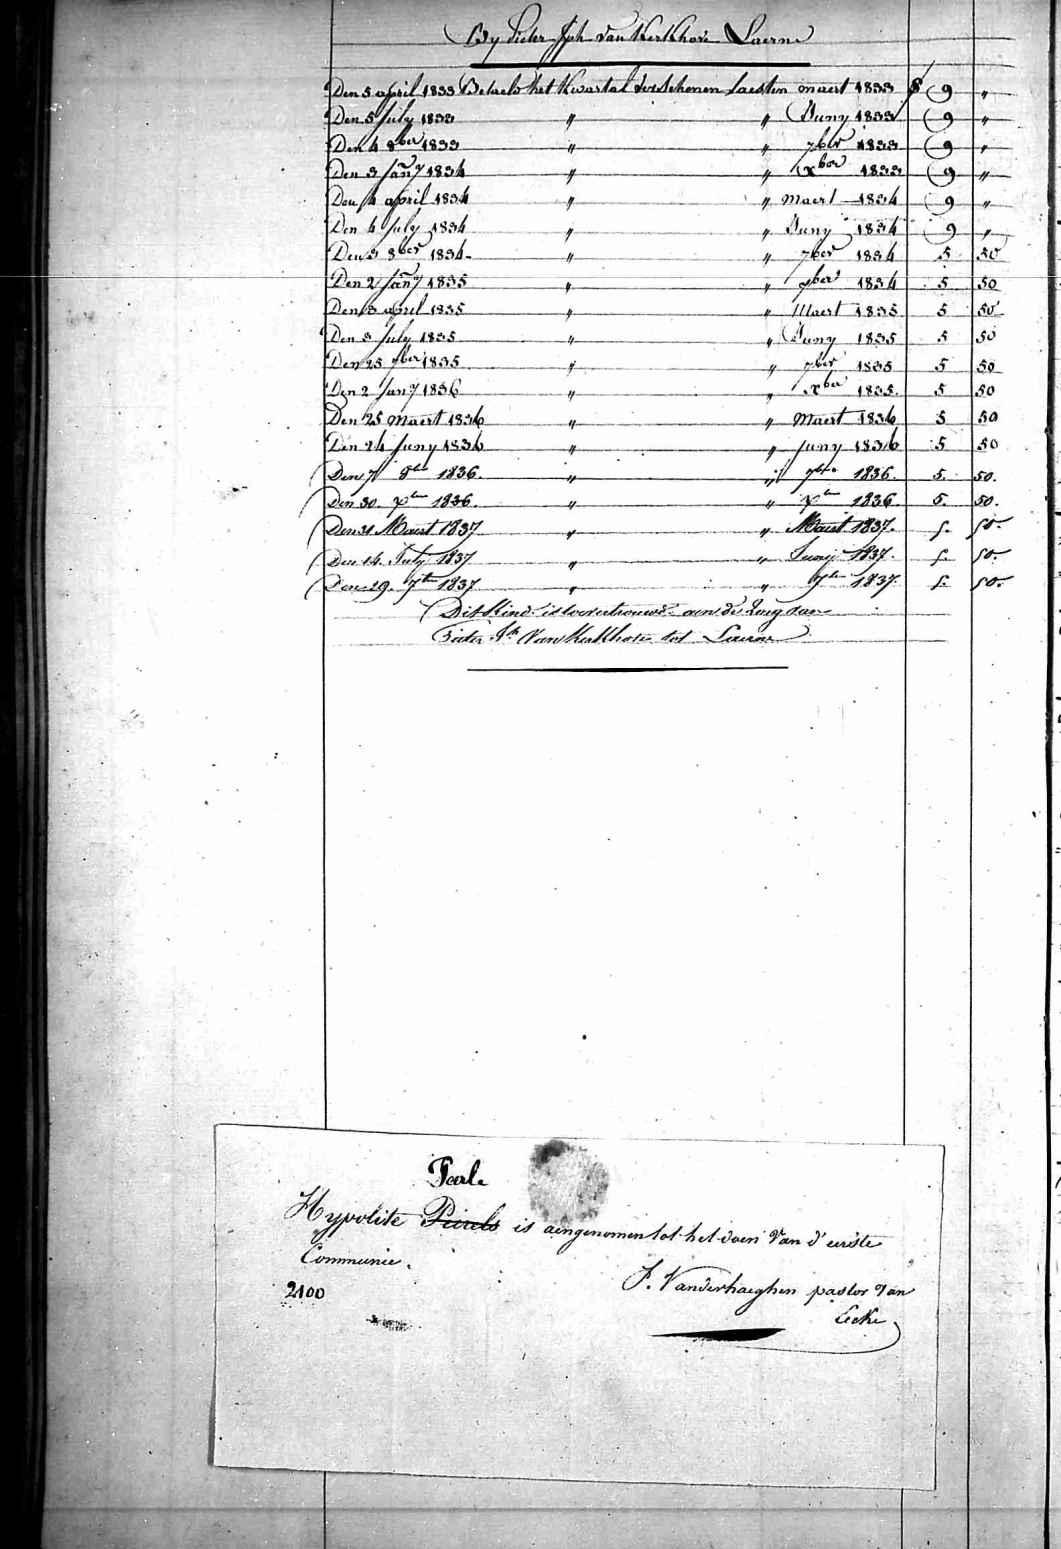 By Pieter Jph van Kerkhove Laerne
Den 5 april 1833 Betaeld het Kwartal verschenen laesten maert 1833 f 9 "
Den 5 July 1833 " " Juny 1833 9 "
Den 4 8ber 1833 " " 7ber 1833 9 "
Den 3 Jany 1834 " " Xber 1833 9 "
Den 4 april 1834 " " Maert 1834 9 "
Den 4 July 1834 " " Juny 1834 9 "
Den 3 8ber 1834 " " 7ber 1834 5 50
Den 2 Jany 1835 " " xber 1834 5 50
Den 3 april 1835 " " Maert 1835 5 50
Den 3 July 1835 " " Juny 1835 5 50
Den 25 1835 " " 7ber 1835 5 50
Den 2 Jany 1836 " " Xber 1835. 5 50
Den 25 Maert 1836 " " Maert 1836 5 50
Den 24 Juny 1836 " " Juny 1836 5 50
Den 7 8ber 1836. " " 7bre 1836. 5. 50.
Den 30. Xber 1836. " " Xber 1836. 5. 50.
Den 31 Maert 1837 " " Maert 1837. 5. 50.
Den 14. July 1837 " " Juny 1837. 5. 50.
Den 29. 7br 1837 " " 7bre 1837. 5. 50.
Dit Kind is toevertrouwd aen de zorg van
Pieter Jh Van Kerkhove tot Laerne
Hypolite is aengenomen tot het doen van d'eerste
Communie.
2100
J. Vanderhaeghen pastor van
Eecke